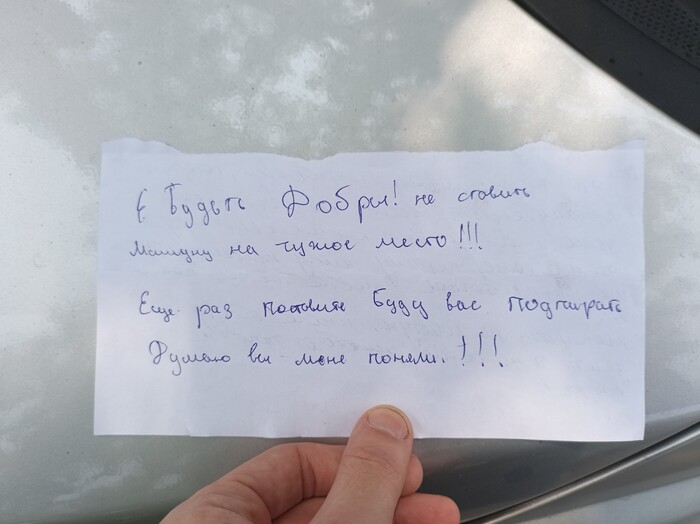 Будьте Добры! не ставить
Машину на чужое место!!!
Еще раз поставите буду вас подпирать
Думаю вы мене поняли.!!!